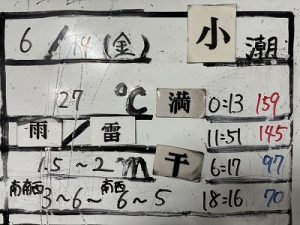 6/14(金) 小潮
27 ℃ 満 0:13 159
雨/雷 11:51 145
1.5~2m 干 6:17 97
南南西 3~6~ 南西 6~5 18:16 70